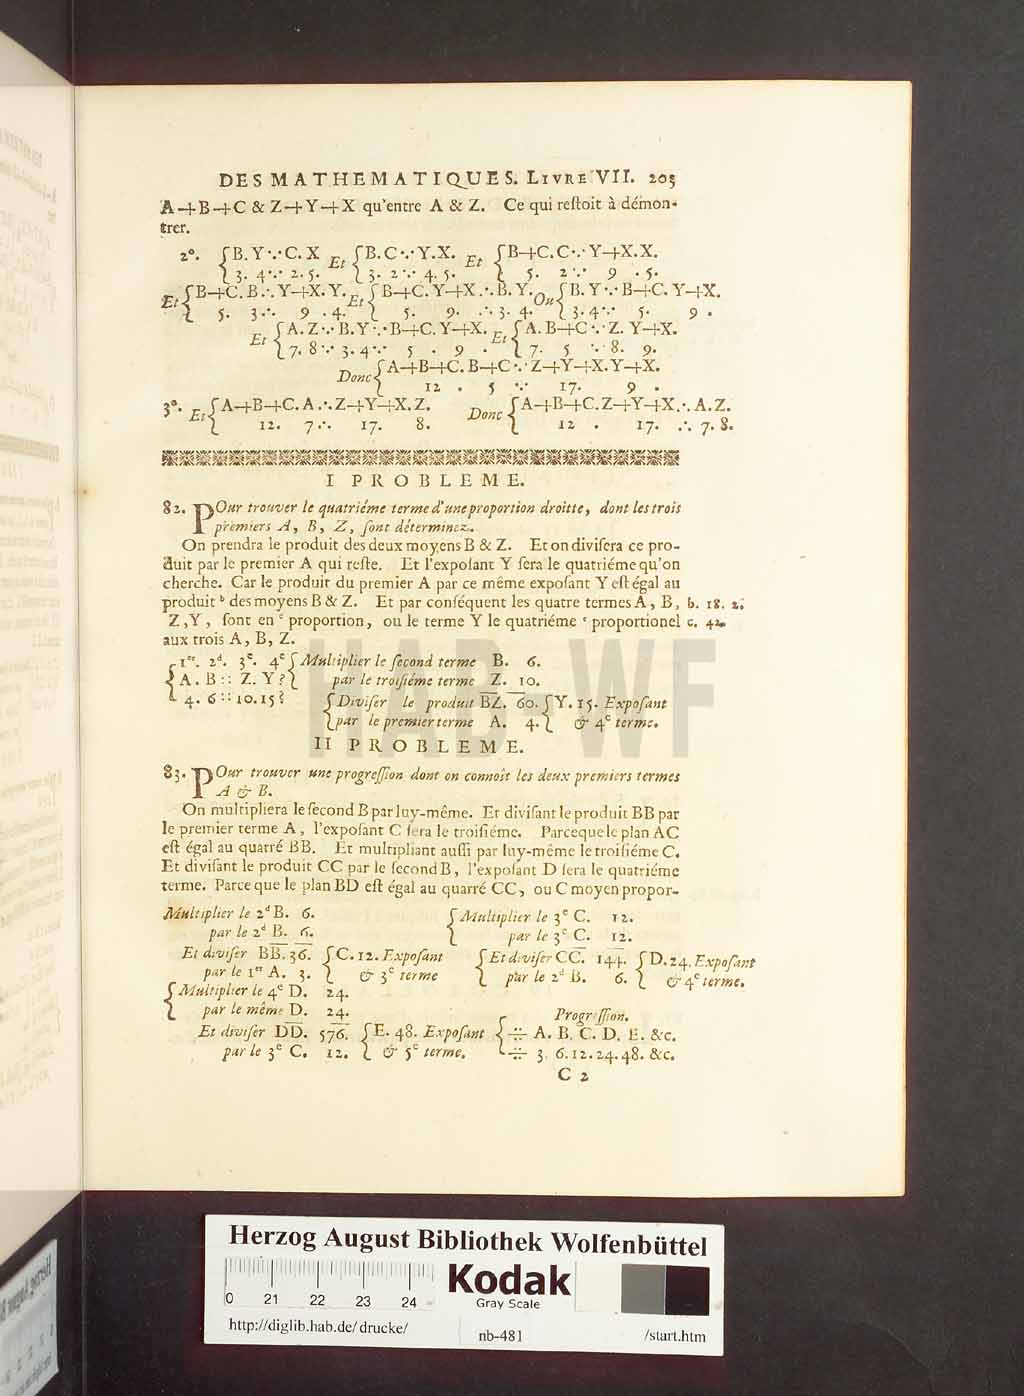 DES MATHEMATIQUES. LIVRE VII. 203
A+B+C & Z+Y+X qu'entre A & Z. Ce qui reſtoit à démon-
trer.
2°. {B.Y∵C.X Et {B.C∵Y.X. Et {B+C.C∵Y+X.X.
3. 4∵2. 5. 3. 2∵4. 5. 5. 2∵ 9 . 5.
Et {B+C.B∴Y+X.Y. Et {B+C.Y+X∴B.Y. Ou {B.Y∵B+C.Y+X.
5. 3∴ 9 . 4. 5. 9. ∴3. 4. 3. 4∵ 5. 9 .
Et {A.Z∵B.Y∵B+C.Y+X. Et {A.B+C∵Z.Y+X.
7. 8∵3. 4∵ 5 . 9 . 7. 5 ∵8. 9.
Donc {A+B+C.B+C∵Z+Y+X.Y+X.
12 . 5 ∵ 17. 9 .
3°. Et {A+B+C.A∴Z+Y+X.Z. Donc {A+B+C.Z+Y+X∴A.Z.
12. 7∴ 17. 8. 12 . 17. ∴ 7. 8.
I PROBLEME.
82. POur trouver le quatriéme terme d'une proportion droitte, dont les trois
premiers A, B, Z, ſont déterminez.
On prendra le produit des deux moyens B & Z. Et on diviſera ce pro-
duit par le premier A qui reſte. Et l'expoſant Y ſera le quatriéme qu'on
cherche. Car le produit du premier A par ce même expoſant Y eſt égal au
produit ᵇ des moyens B & Z. Et par conſéquent les quatre termes A, B, b. 18. 2.
Z, Y, ſont en ᶜ proportion, ou le terme Y le quatriéme ᶜ proportionel c. 42.
aux trois A, B, Z.
{1ᵉʳ. 2ᵈ. 3ᵉ. 4ᵉ {Multiplier le ſecond terme B. 6.
A. B :: Z. Y? par le troiſiéme terme Z. 10.
4. 6 :: 10. 15? {Diviſer le produit BZ. 60. {Y. 15. Expoſant
par le premier terme A. 4. & 4ᵉ terme.
II PROBLEME.
83. POur trouver une progreſſion dont on connoît les deux premiers termes
A & B.
On multipliera le ſecond B par luy-même. Et diviſant le produit BB par
le premier terme A, l'expoſant C ſera le troiſiéme. Parceque le plan AC
eſt égal au quarré BB. Et multipliant auſſi par luy-même le troiſiéme C.
Et diviſant le produit CC par le ſecond B, l'expoſant D ſera le quatriéme
terme. Parce que le plan BD eſt égal au quarré CC, ou C moyen propor-
Multiplier le 2ᵈ B. 6. {Multiplier le 3ᵉ C. 12.
par le 2ᵈ B. 6. par le 3ᵉ C. 12.
Et diviſer BB. 36. {C. 12. Expoſant {Et diviſer CC. 144. {D. 24. Expoſant
par le 1ᵉʳ A. 3. & 3ᵉ terme par le 2ᵈ B. 6. & 4ᵉ terme.
{Multiplier le 4ᵉ D. 24.
par le même D. 24. Progreſſion.
Et diviſer DD. 576. {E. 48. Expoſant {÷ A. B. C. D. E. &c.
par le 3ᵉ C. 12. & 5ᵉ terme. ÷ 3. 6. 12. 24. 48. &c.
C 2
HAB-WF
Herzog August Bibliothek Wolfenbüttel
0 21 22 23 24
Kodak
Gray Scale
http://diglib.hab.de/drucke/ nb-481 /start.htm